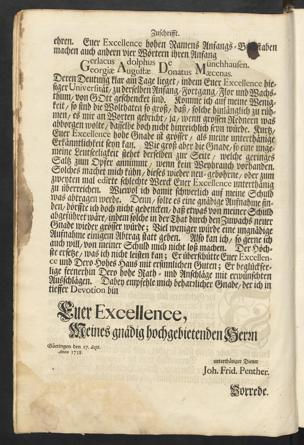 Zuschrifft.
ehren. Euer Excellence hohen Namens Anfangs-Buchstaben
machen auch andern vier Wörtern ihren Anfang
Gerlacus Adolphus De Münchhausen.
Georgiæ Augustæ Donatus Mæcenas.
Deren Deutung klar am Tage lieget, indem Euer Excellence hiesiger
Universität, zu derselben Anfang, Fortgang, Flor und Wachsthum,
von GOtt geschencket sind. Komme ich auf meine Wenigkeit,
so sind die Wolthaten so groß, daß, solche hinlänglich zu rühmen,
es mir an Worten gebricht, ja, wenn grossen Rednern was
abborgen wolte, dasselbe doch nicht hinreichlich seyn würde. Kurtz,
Euer Excellence hohe Gnade ist grösser, als meine unterthänige
Erkänntlichkeit seyn kan. Wie groß aber die Gnade, so eine ungemeine
Leutseeligkeit stehet derselben zur Seite, welche geringes
Saltz zum Opfer annimmt, wenn kein Weyhrauch vorhanden.
Solches machet mich kühn, dieses wieder neu-gebohrne, oder zum
zweyten mal edirte schlechte Werck Euer Excellence unterthänig
zu überreichen. Wiewol ich damit schwerlich auf meine Schuld
was abtragen werde. Denn, solte es eine gnädige Aufnahme finden,
dörffte ich doch nicht gedencken, daß etwas von meiner Schuld
abgeführet wäre, indem solche in der That durch den Zuwachs neuer
Gnade wieder grösser würde; Viel weniger würde eine ungnädige
Aufnahme einigem Abtrag statt geben. Also kan ich, so gerne ich
auch will, von meiner Schuld mich nicht loß machen. Der Höchste
ersetze, was ich nicht leisten kan; Er überschütte Euer Excellence
und Dero Hohes Haus mit ersinnlichen Guten; Er beglückseelige
fernerhin Dero hohe Rath- und Anschläge mit erwünschten
Ausschlägen. Dabey empfehle mich beharrlicher Gnade, der ich in
tieffer Devotion bin
Euer Excellence,
Meines gnädig hochgebietenden Herrn
Göttingen den 17. Sept.
Anno 1738.
unterthäniger Diener
Joh. Frid. Penther.
Vorrede.